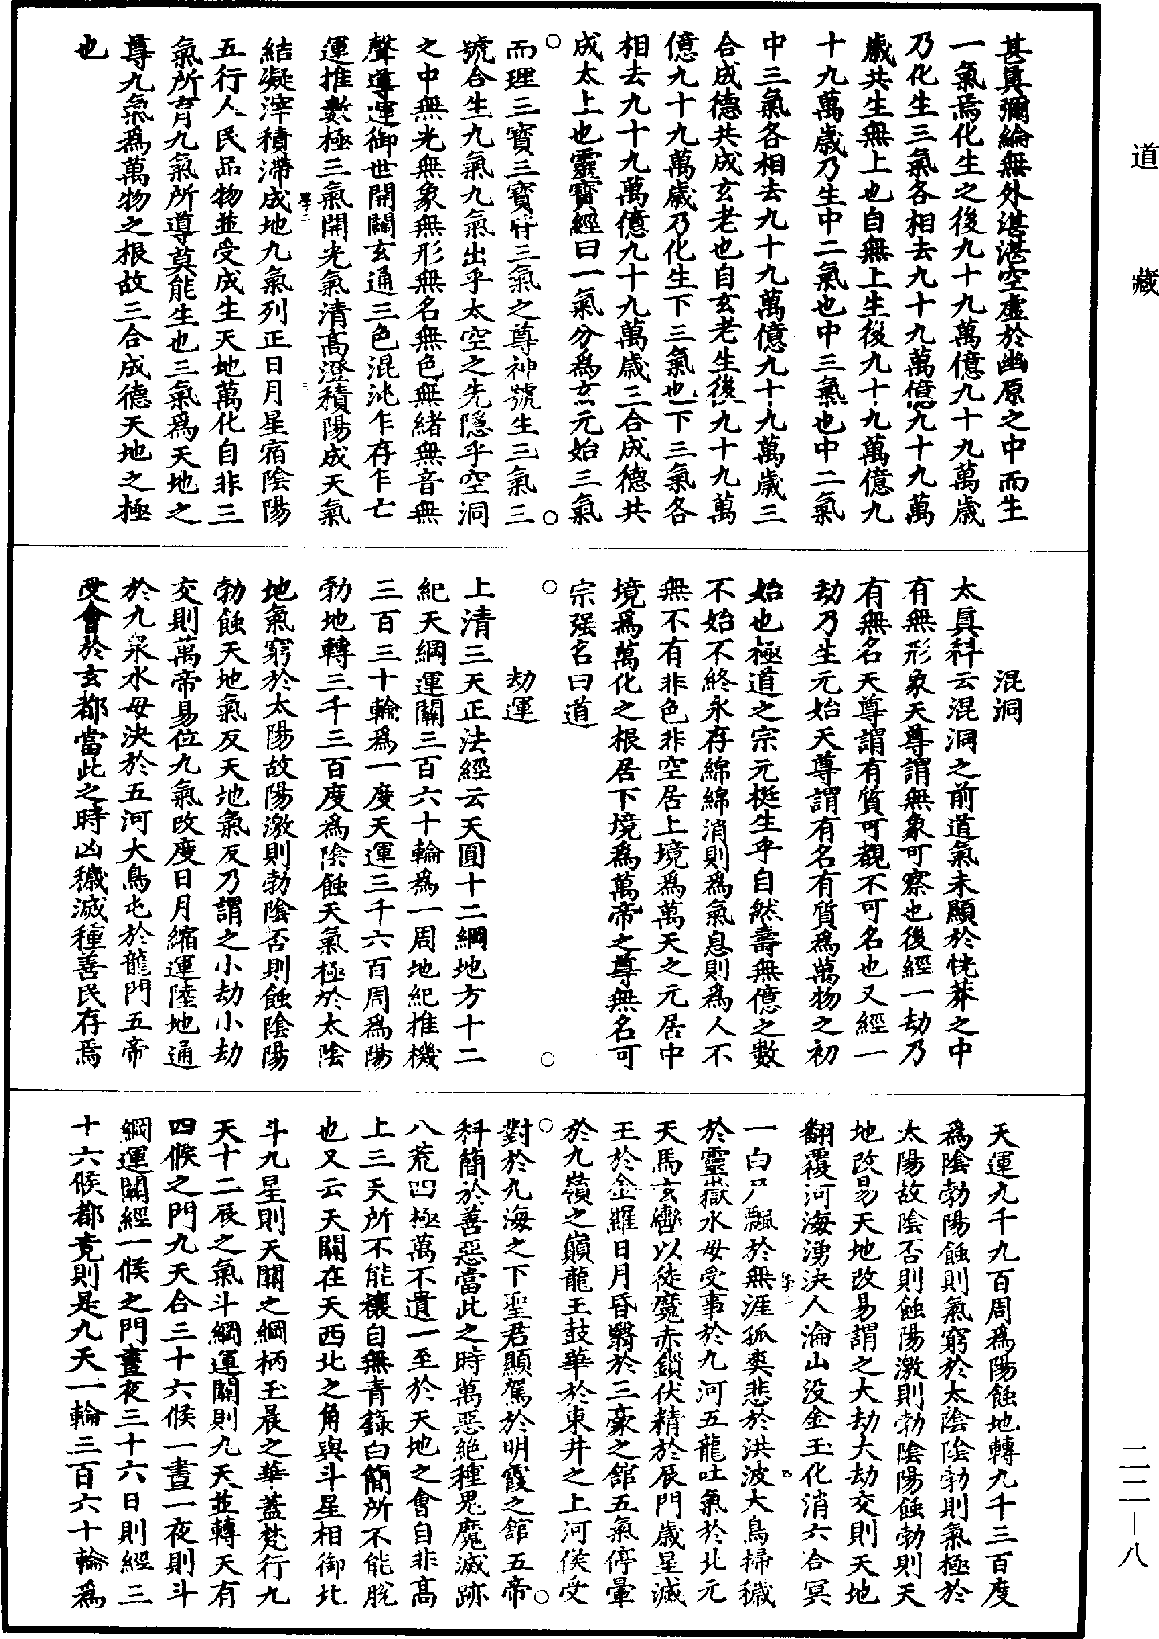 道藏
甚真彌綸無外湛湛空虛於幽原之中而生
一氣焉化生之後九十九萬億九十九萬歲
乃化生三氣各相去九十九萬億九十九萬
歲共生無上也自無上生後九十九萬億九
十九萬歲乃生中二氣也中三氣也中二氣
中三氣各相去九十九萬億九十九萬歲三
合成德共成玄老也自玄老生後九十九萬
億九十九萬歲乃化生下三氣也下三氣各
相去九十九萬億九十九萬歲三合成德共
成太上也靈寶經曰一氣分爲玄元始三氣
而理三寶三寶皆三氣之尊神號生三氣三
號合生九氣九氣出乎太空之先隱乎空洞
之中無光無象無形無名無色無緒無音無
聲導運御世開闢玄通三色混沌乍存乍亡
運推數極三氣開光氣清高澄積陽成天氣
結凝滓積滯成地九氣列正日月星宿陰陽
五行人民品物並受成生天地萬化自非三
氣所育九氣所導莫能生也三氣爲天地之
尊九氣爲萬物之根故三合成德天地之極
也
混洞
太真科云混洞之前道氣未顯於恍莽之中
有無形象天尊謂無象可察也後經一劫乃
有無名天尊謂有質可覩不可名也又經一
劫乃生元始天尊謂有名有質爲萬物之初
始也極道之宗元挺生乎自然壽無億之數
不始不終永存綿綿消則爲氣息則爲人不
無不有非色非空居上境爲萬天之元居中
境爲萬化之根居下境爲萬帝之尊無名可
宗强名曰道
劫運
上清三天正法經云天圓十二綱地方十二
紀天綱運關三百六十輪爲一周地紀推機
三百三十輪爲一度天運三千六百周爲陽
勃地轉三千三百度爲陰蝕天氣極於太陰
地氣窮於太陽故陽激則勃陰否則蝕陰陽
勃蝕天地氣反天地氣反乃謂之小劫小劫
交則萬帝易位九氣改度日月縮運陸地通
於九泉水母決於五河大鳥屯於龍門五帝
受會於玄都當此之時凶穢滅種善民存焉
天運九千九百周爲陽蝕地轉九千三百度
爲陰勃陽蝕則氣窮於太陰陰勃則氣極於
太陽故陰否則蝕陽激則勃陰陽蝕勃則天
地改易天地改易謂之大劫大劫交則天地
翻覆河海湧決人淪山没金玉化消六合冥
一白尸飄於無涯孤爽悲於洪波大鳥掃穢
於靈嶽水母受事於九河五龍吐氣於北元
天馬玄轡以徒魔赤鎖伏精於辰門歲星滅
王於金羅日月昏翳於三豪之館五氣停暈
於九嶺之巔龍王鼓華於東井之上河侯受
對於九海之下聖君顯駕於明霞之館五帝
科簡於善惡當此之時萬惡絕種鬼魔滅跡
八荒四極萬不遺一至於天地之會自非高
上三天所不能禳自無青籙白簡所不能脫
也又云天關在天西北之角與斗星相御北
斗九星則天關之綱柄玉晨之華蓋梵行九
天十二辰之氣斗綱運關則九天並轉天有
四候之門九天合三十六候一晝一夜則斗
綱運關經一候之門晝夜三十六日則經三
十六候都竟則是九天一輪三百六十輪爲
二二—八